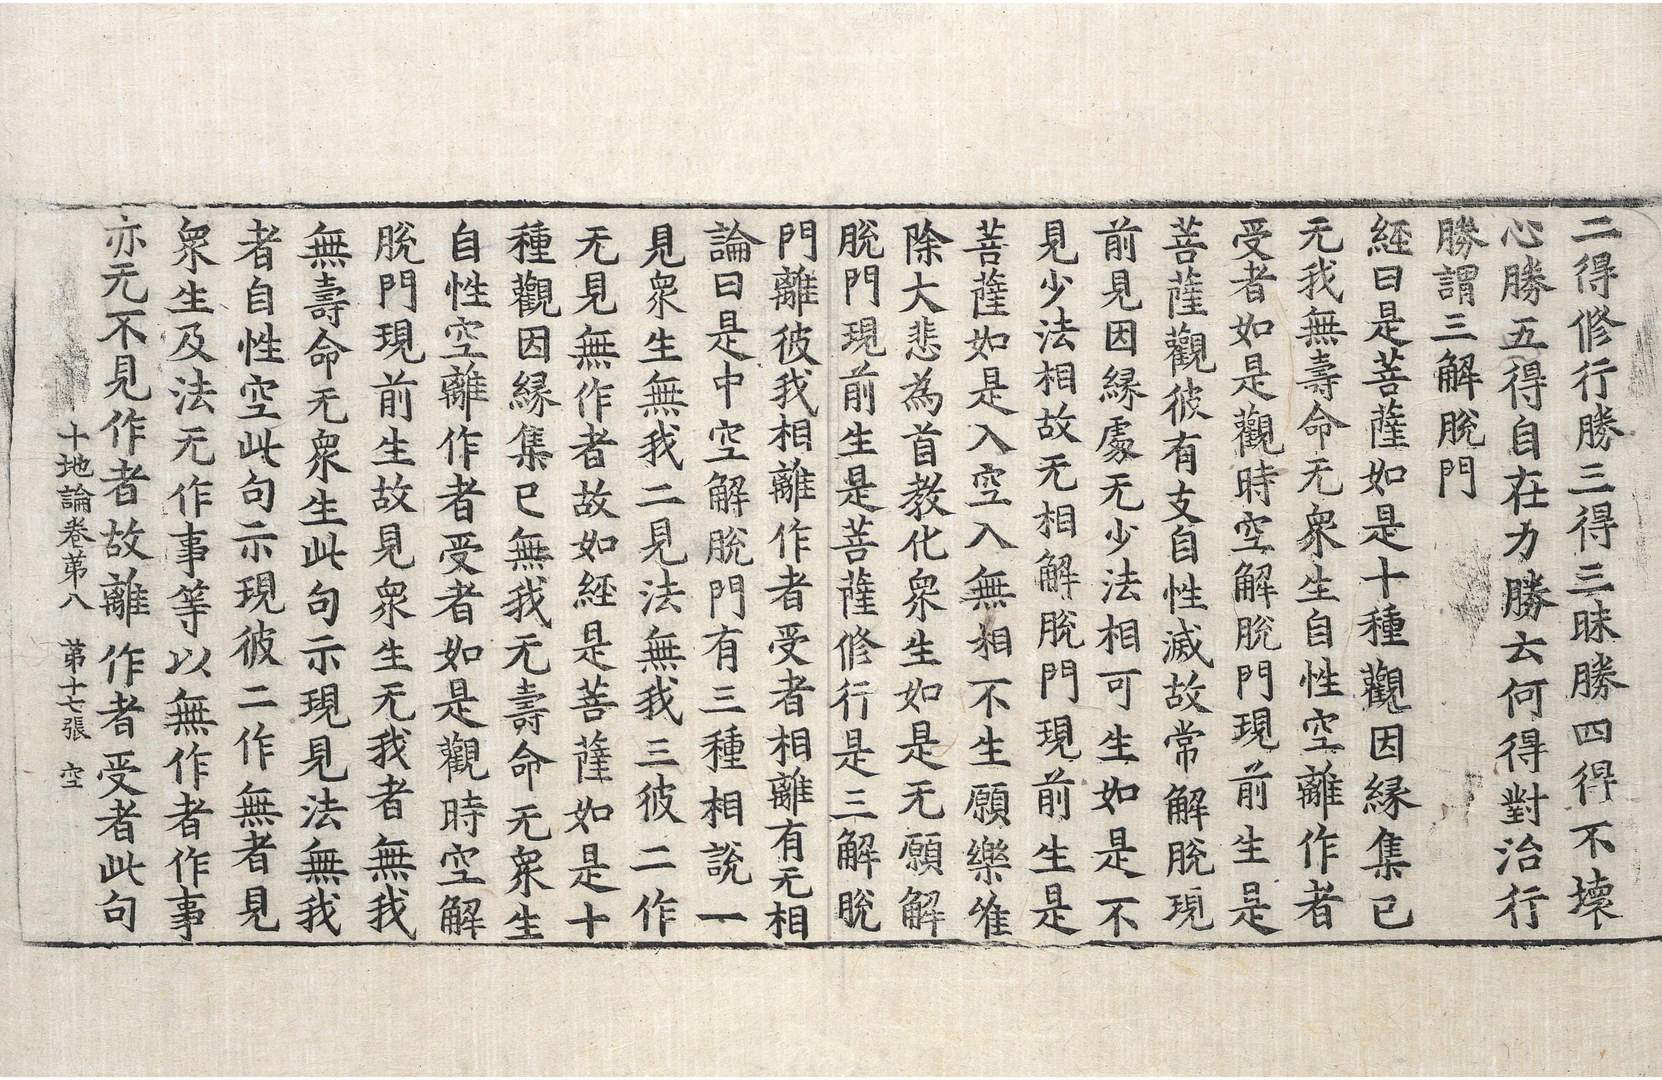 二得修行勝三得三昧勝四得不壞
心勝五得自在力勝云何得對治行
勝謂三解脫門
經曰是菩薩如是十種觀因縁集已
无我無壽命无衆生自性空離作者
受者如是觀時空解脫門現前生是
菩薩觀彼有支自性滅故常解脫現
前見因縁處无少法相可生如是不
見少法相故无相解脫門現前生是
菩薩如是入空入無相不生願樂唯
除大悲為首教化衆生如是无願解
脫門現前生是菩薩修行是三解脫
門離彼我相離作者受者相離有无相
論曰是中空解脫門有三種相說一
見衆生無我二見法無我三彼二作
无見無作者故如經是菩薩如是十
種觀因縁集已無我无壽命无衆生
自性空離作者受者如是觀時空解
脫門現前生故見衆生无我者無我
無壽命无衆生此句示現見法無我
者自性空此句示現彼二作無者見
衆生及法无作事等以無作者作事
亦无不見作者故離作者受者此句
十地論卷第八 第十七張 空